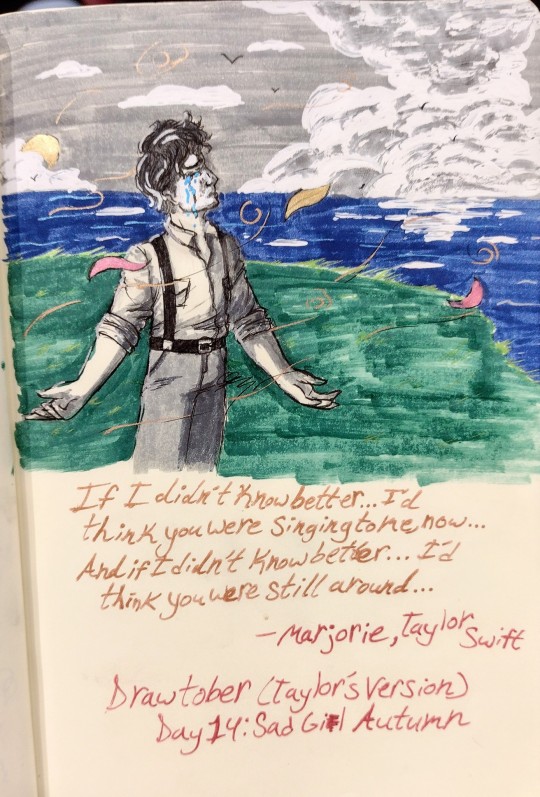 If I didn't know better... I'd
think you were singing to me now...
And if I didn't know better... I'd
think you were still around...
- Marjorie, Taylor Swift
Drawtober (Taylor's Version)
Day 14: Sad Girl Autumn